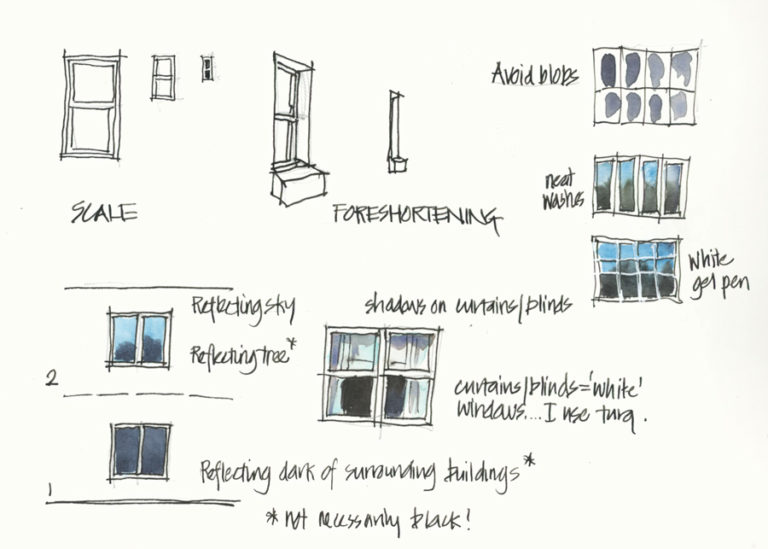 Avoid blobs
SCALE
FORESHORTENING
neat
washes
white
gel pen
Reflecting sky
shadows on curtains/blinds
Reflecting tree*
2
curtains/blinds='white'
windows.... I use turq.
Reflecting dark of surrounding buildings*
1
*not necessarily black!